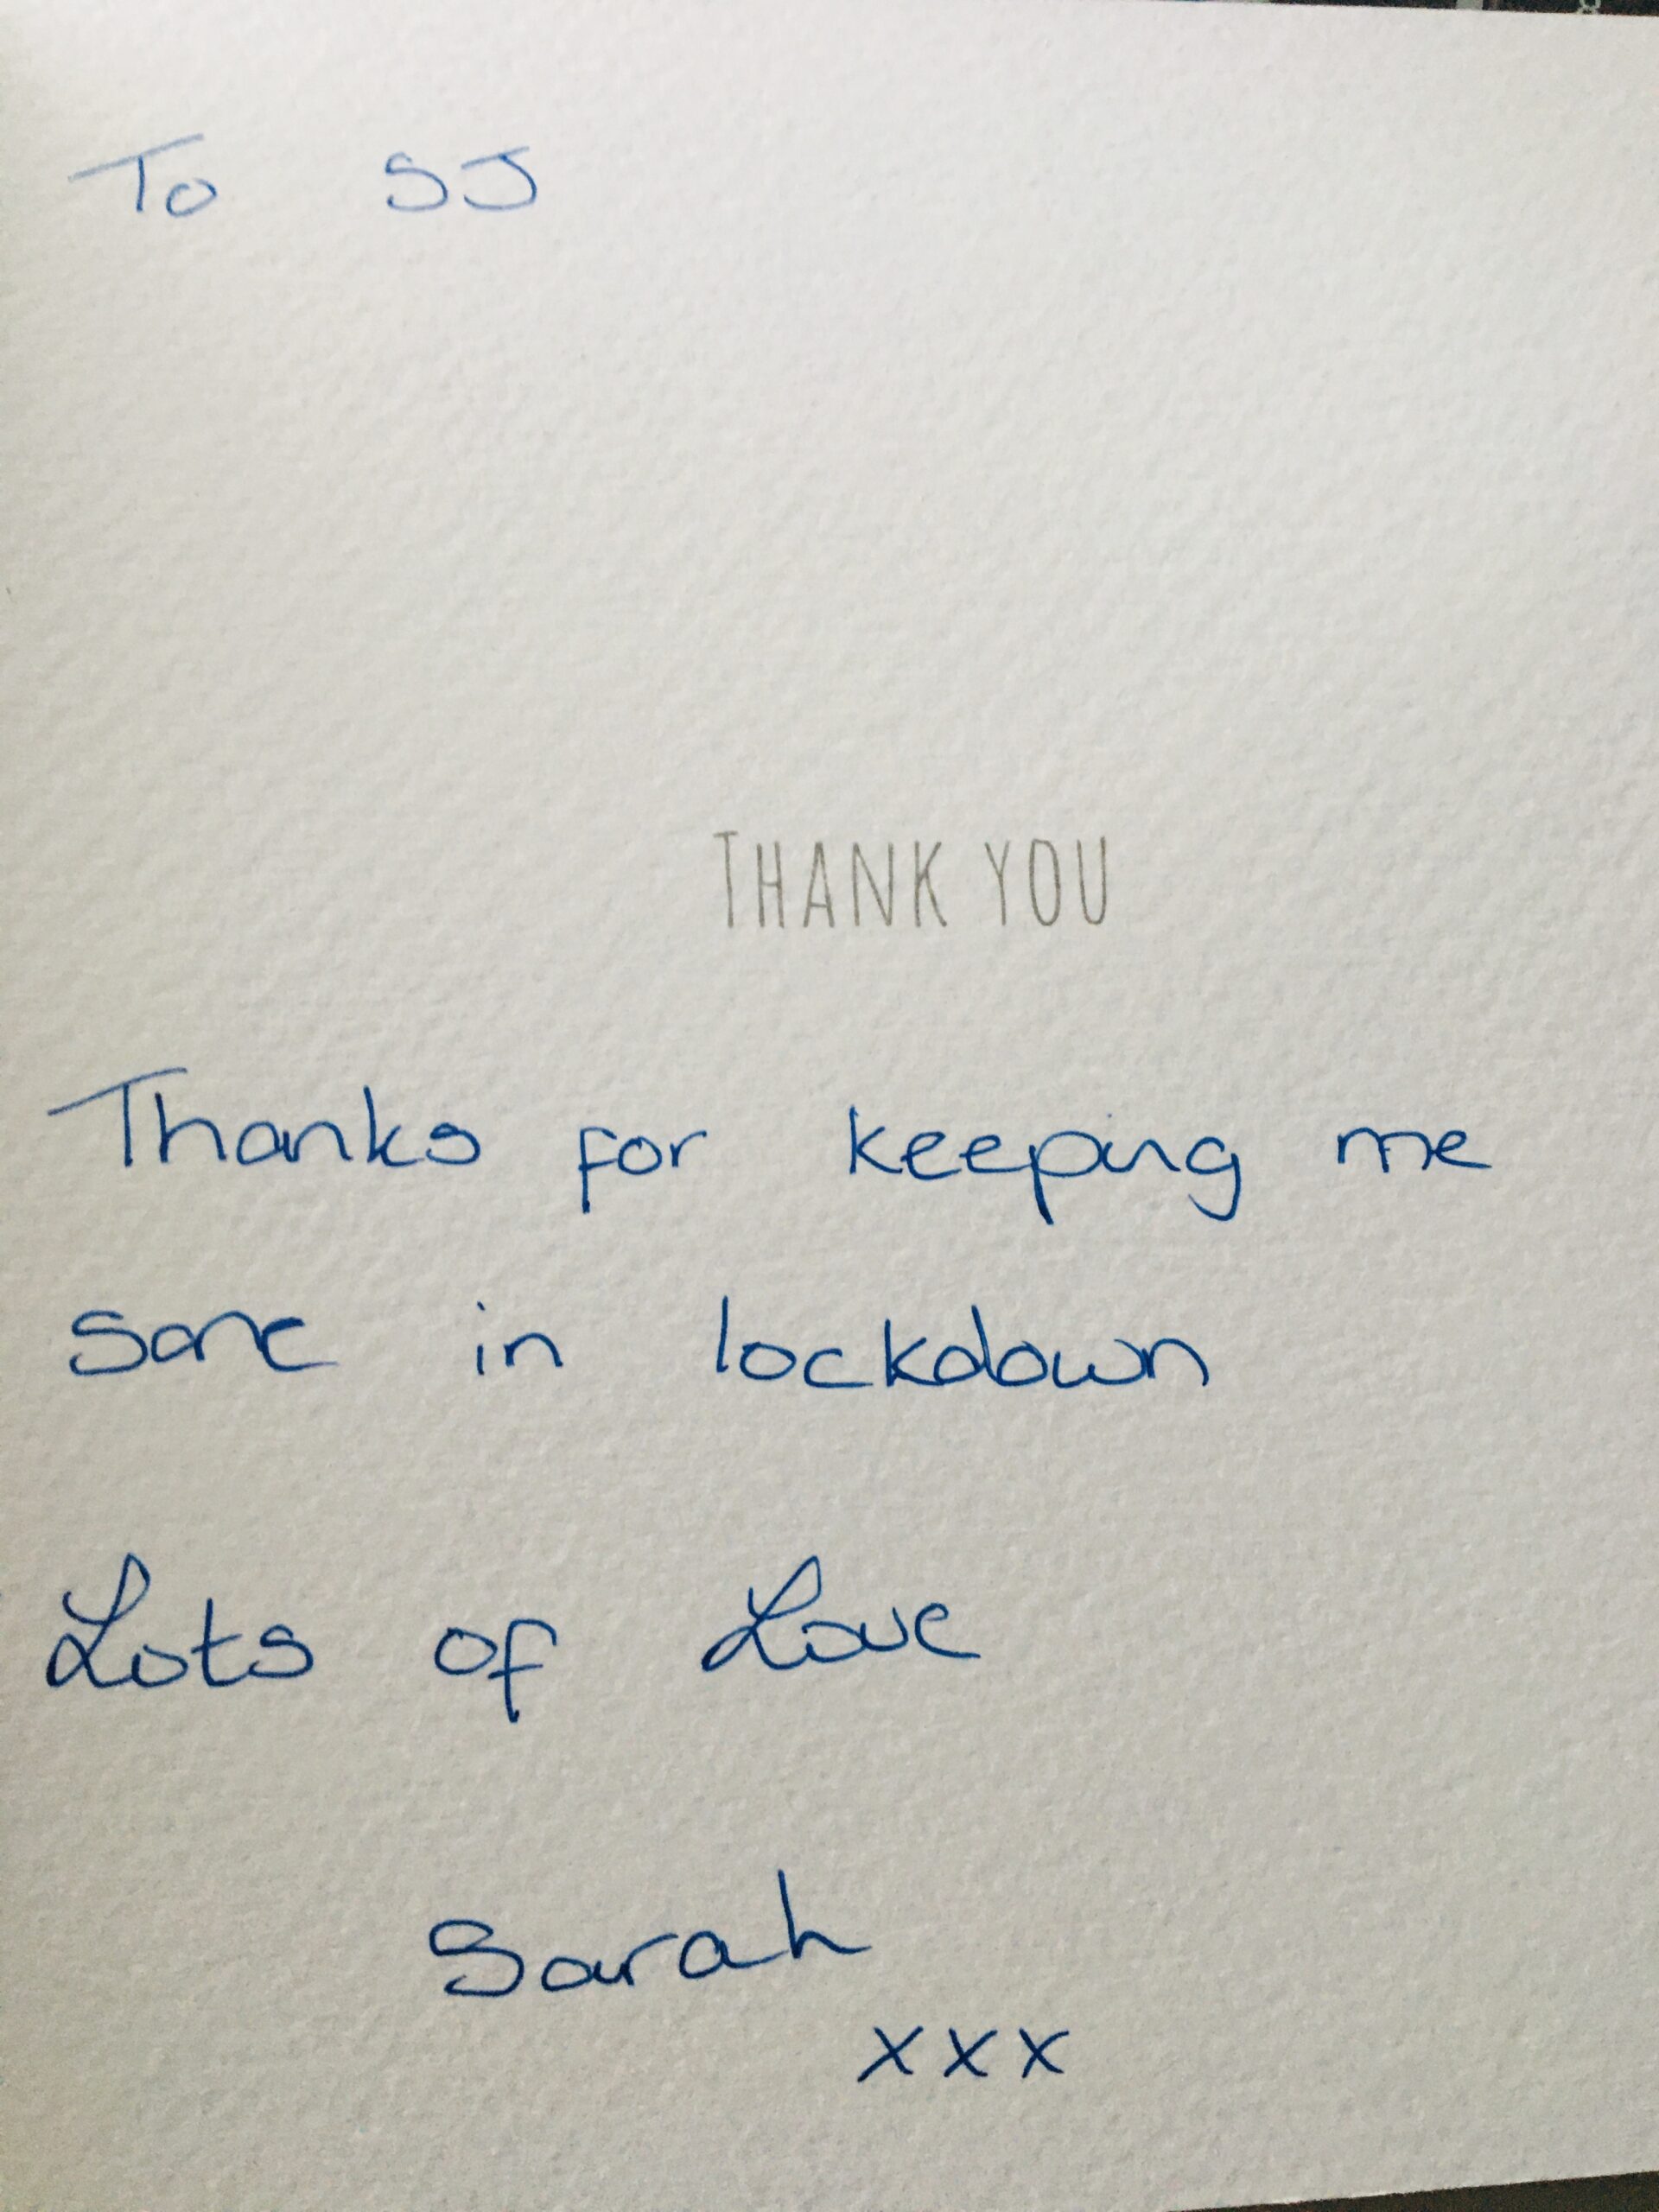 To SJ
THANK YOU
Thanks for keeping me
sane in lockdown
Lots of Love
Sarah
xxx